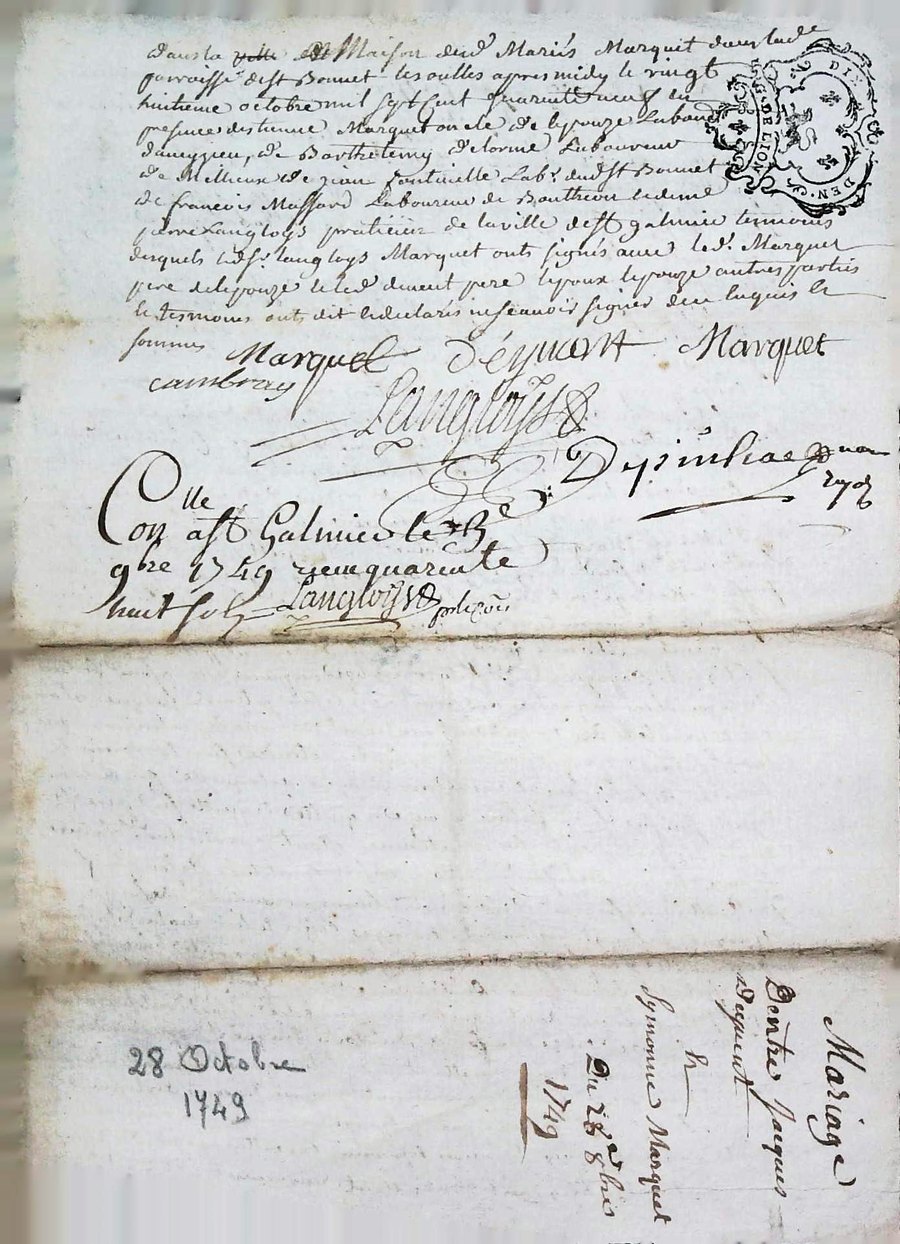 dans la ville Maison desd Mariés Marquet dans lad
parroisse de st Bonnet les oulles apres midy le vingt
huitieme octobre mil sept cent quarente neuf en
presence destienne Marquet oncle de lepouze Labour
daneyzieu, de Barthelemy delorme Laboureur
de Meilleux de jean fontvielle Labr. dudst Bonnet
de francois Massard Laboureur de Bouthéon led
pierre Langloys praticien de la ville de st galmier temoins
desquels led sr. langloys Marquet onts signés avec led. Marquet
pere delepouze led pere lepoux lepouze autres parties
et tesmoins onts dit et declarés ne scavoir signer de ce enquis et
sommés Marquet Déquant Marquet
cambray
Langloys
Depinhac
Conlle a st Galmier le 3e
9bre 1749 recu quarente
huit sols Langloys
DE LION
GEN.
28 Octobre
1749
Mariage
Dentre Jacques
Dequent
Et
Symonne Marquet
Du 28e 8bre
1749